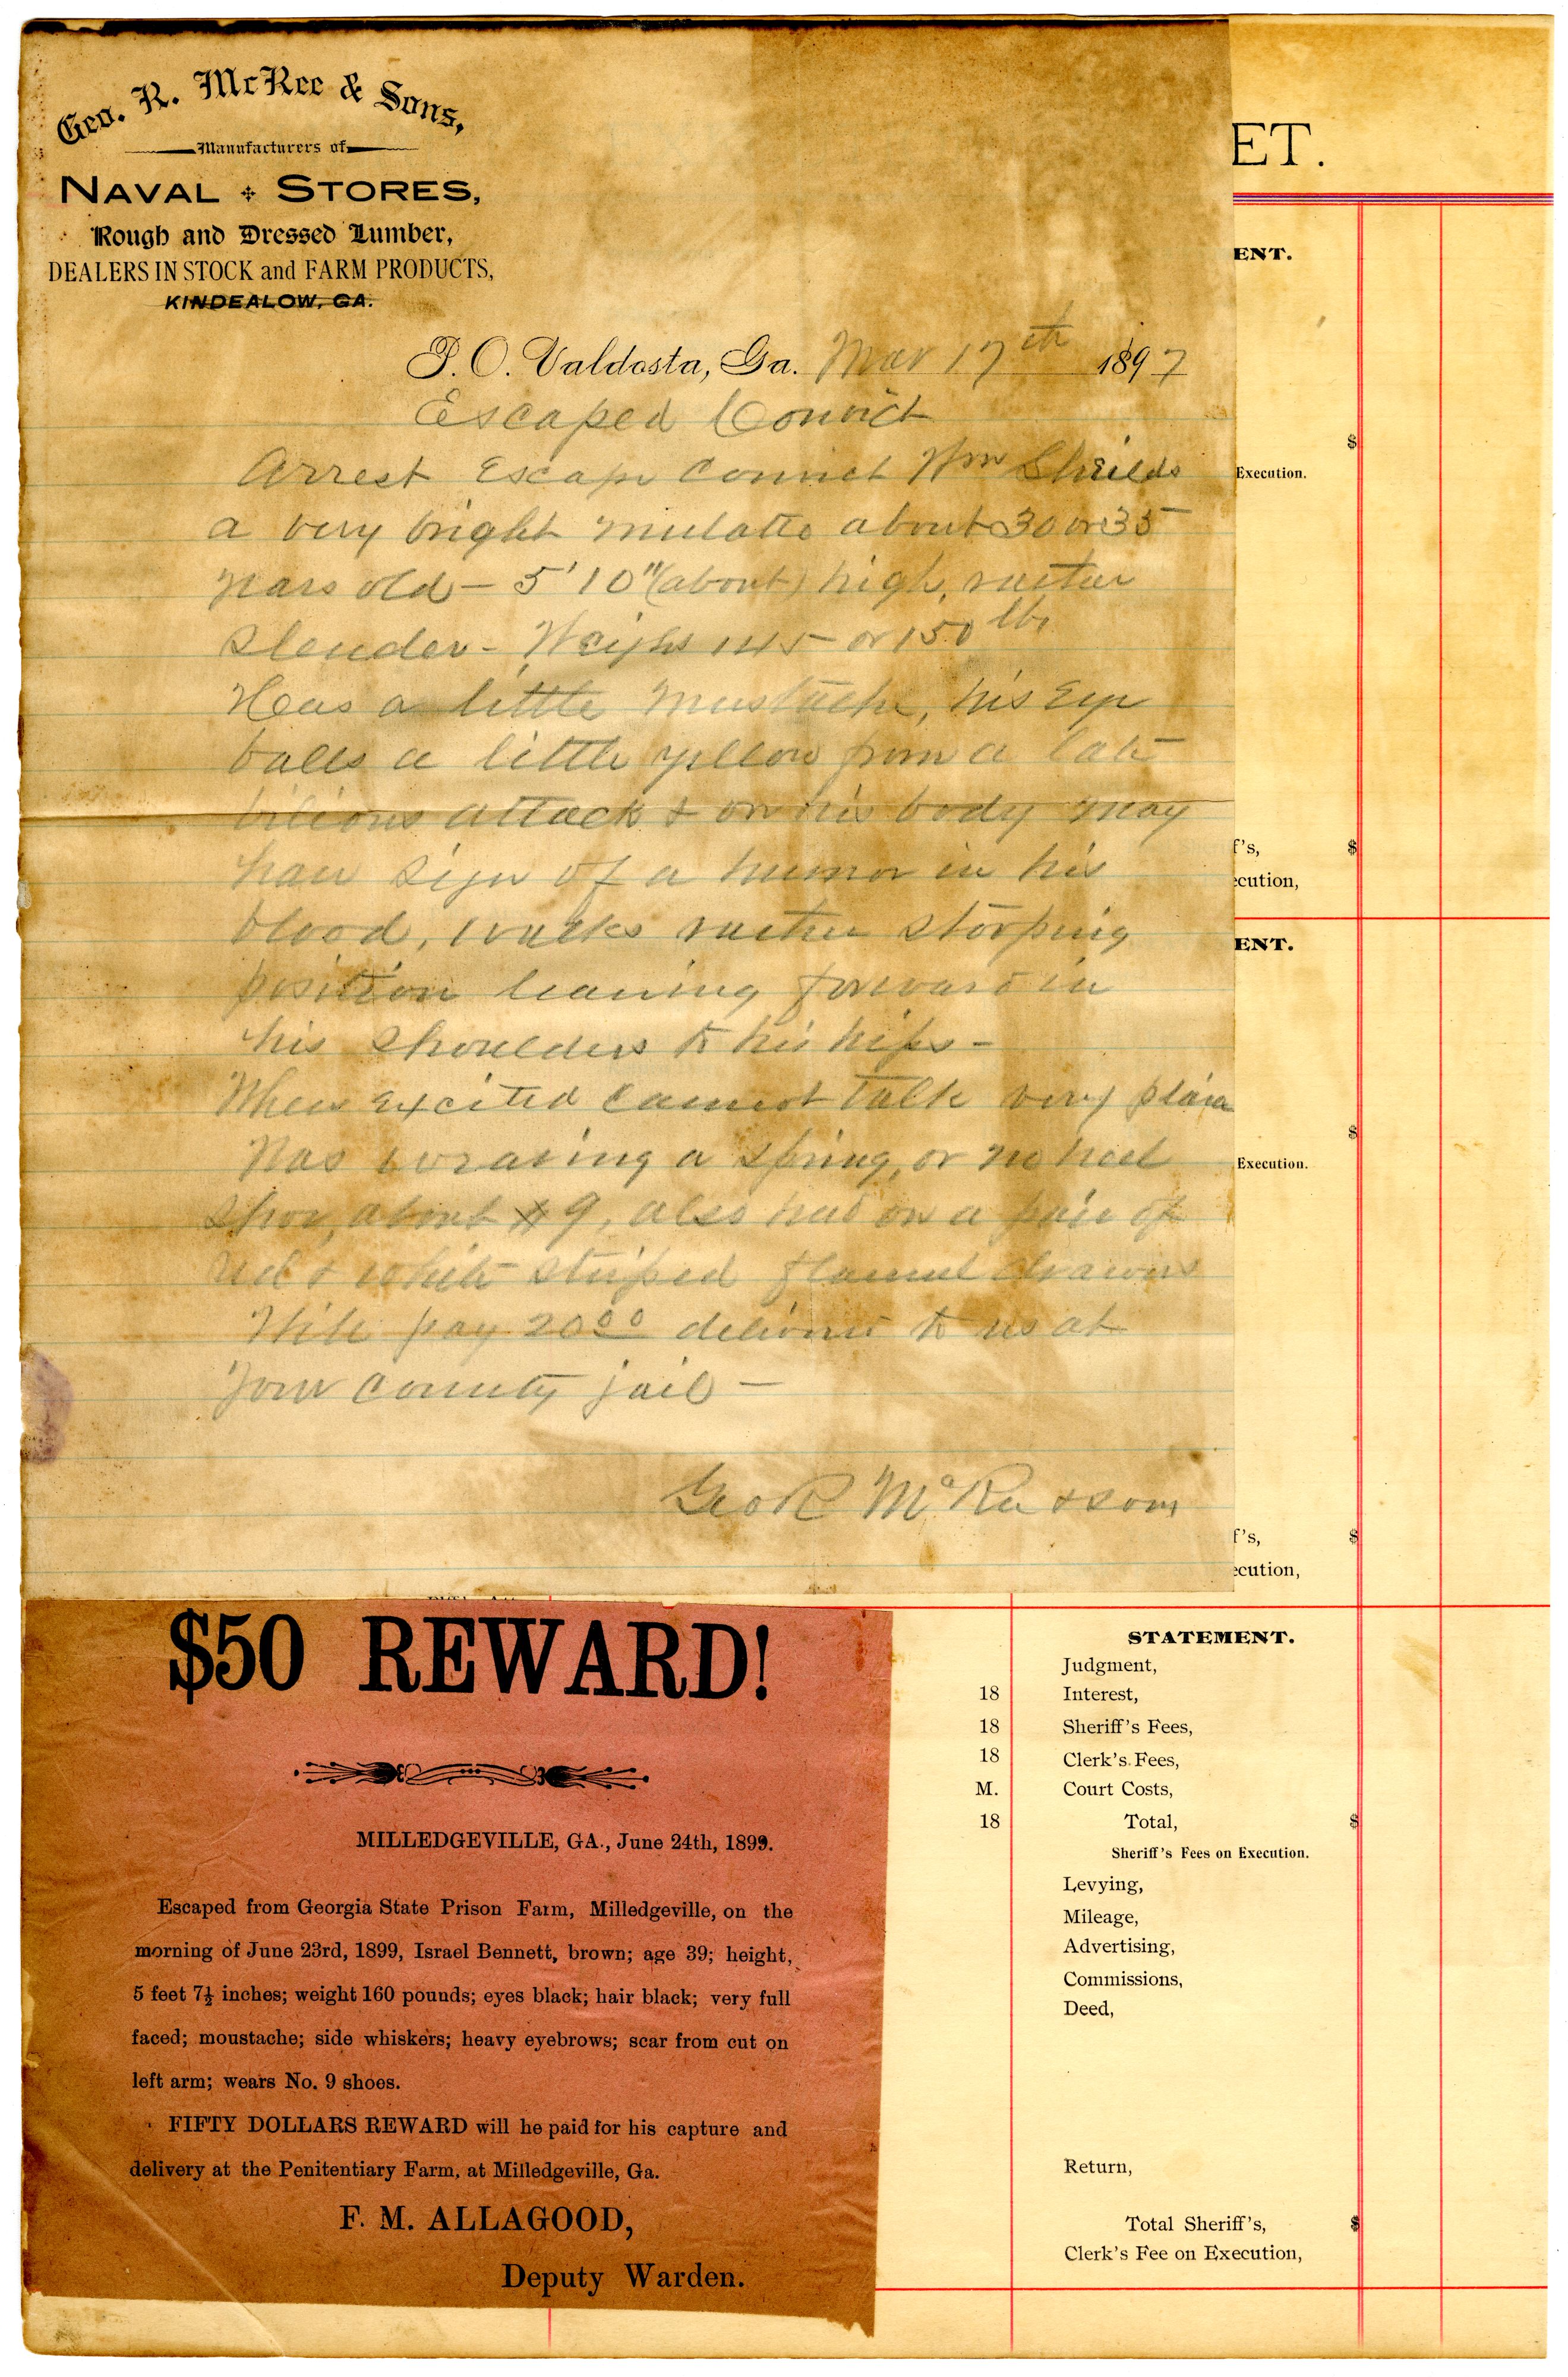 Geo. R. McRee & Sons,
Manufacturers of
NAVAL STORES,
Rough and Dressed Lumber,
DEALERS IN STOCK and FARM PRODUCTS,
KINDEALOW, GA.
P. O. Valdosta, Ga. Mar 17th 1897
Escaped Convict
Arrest Escape Convict Wm Shields
a very bright mulatto about 30 or 35
years old — 5' 10" (about) high, rather
slender - Weighs 145 or 150 lbs
Has a little mustache, his Eye
balls a little yellow from a late
bilious attack & on his body may
have sign of a humor in his
blood, walks rather stooping
position leaning forward in
his shoulders to his hips -
When Excited cannot talk very plain
Was wearing a spring, or no heel
shoe, about # 9, also had on a pair of
red & white striped flannel drawers
Will pay 20 00 delivered to us at
your county jail —
Geo R McRee & Sons
ET.
ENT.
$
Execution.
f's, $
ecution,
ENT.
$
Execution.
f's, $
ecution,
$50 REWARD!
MILLEDGEVILLE, GA., June 24th, 1899.
Escaped from Georgia State Prison Farm, Milledgeville, on the
morning of June 23rd, 1899, Israel Bennett, brown; age 39; height,
5 feet 7½ inches; weight 160 pounds; eyes black; hair black; very full
faced; moustache; side whiskers; heavy eyebrows; scar from cut on
left arm; wears No. 9 shoes.
FIFTY DOLLARS REWARD will he paid for his capture and
delivery at the Penitentiary Farm, at Milledgeville, Ga.
F. M. ALLAGOOD,
Deputy Warden.
STATEMENT.
Judgment,
18 Interest,
18 Sheriff's Fees,
18 Clerk's Fees,
M. Court Costs,
18 Total, $
Sheriff's Fees on Execution.
Levying,
Mileage,
Advertising,
Commissions,
Deed,
Return,
Total Sheriff's, $
Clerk's Fee on Execution,